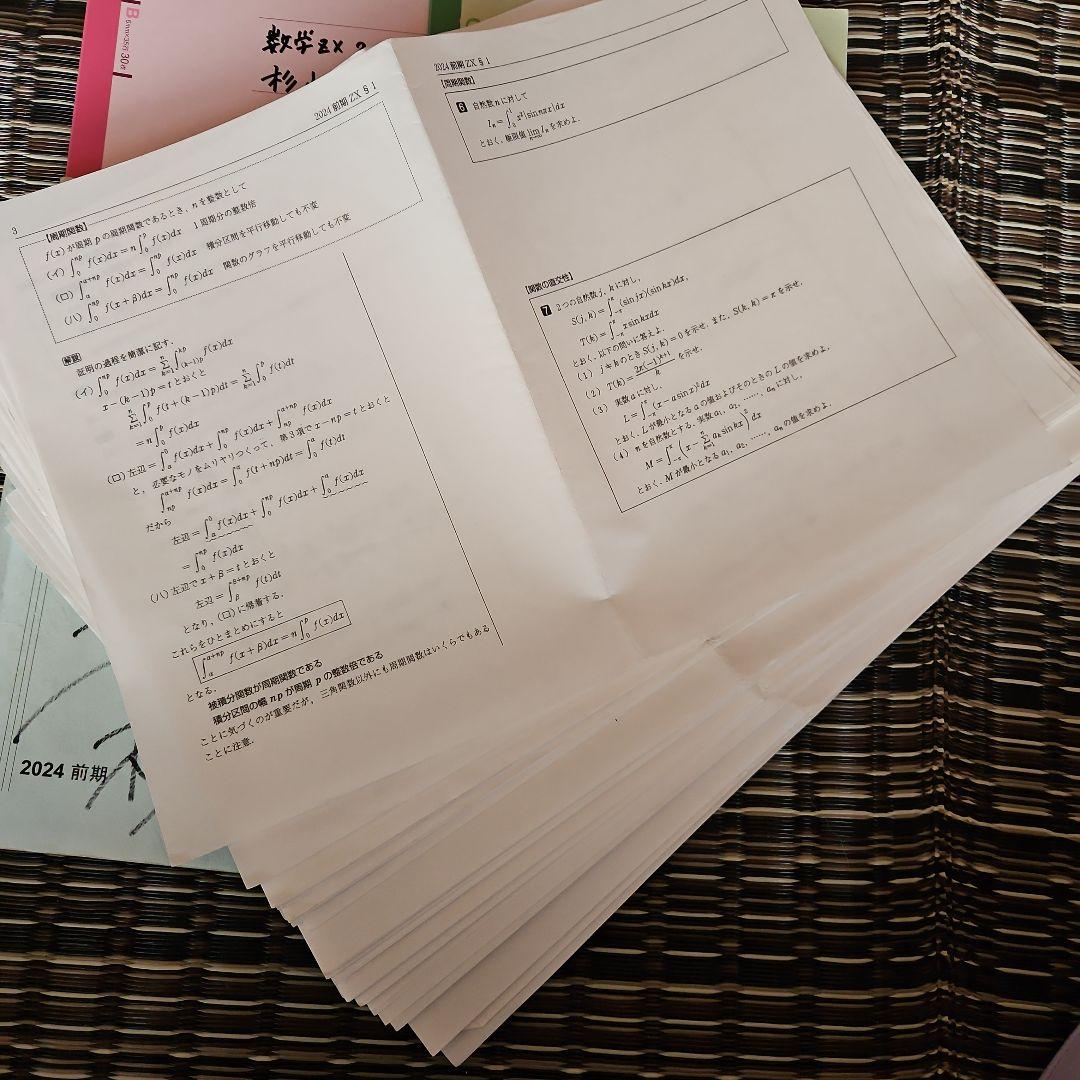 B
6mm×35行 30枚
数学ZX
2024 前期
3
2024 前期 ZX § 1
【周期関数】
f(x) が周期 p の周期関数であるとき, n を整数として
(イ) ∫_0^{np} f(x)dx = n∫_0^p f(x)dx 1 周期分の整数倍
(ロ) ∫_a^{a+np} f(x)dx = ∫_0^{np} f(x)dx 積分区間を平行移動しても不変
(ハ) ∫_0^{np} f(x+β)dx = ∫_0^{np} f(x)dx 関数のグラフを平行移動しても不変
解説
証明の過程を簡潔に記す.
(イ) ∫_0^{np} f(x)dx = Σ_{k=1}^n ∫_{(k-1)p}^{kp} f(x)dx
x-(k-1)p=t とおくと
Σ_{k=1}^n ∫_0^p f(t+(k-1)p)dt = Σ_{k=1}^n ∫_0^p f(t)dt
= n∫_0^p f(x)dx
(ロ) 左辺 = ∫_a^0 f(x)dx + ∫_0^{np} f(x)dx + ∫_{np}^{a+np} f(x)dx
と, 必要なモノをムリヤリつくって, 第 3 項で x-np=t とおくと
∫_{np}^{a+np} f(x)dx = ∫_0^a f(t+np)dt = ∫_0^a f(t)dt
だから
左辺 = ∫_a^0 f(x)dx + ∫_0^{np} f(x)dx + ∫_0^a f(x)dx
= ∫_0^{np} f(x)dx
(ハ) 左辺で x+β=t とおくと
左辺 = ∫_β^{β+np} f(t)dt
となり, (ロ) に帰着する.
これらをひとまとめにすると
∫_a^{a+np} f(x+β)dx = n∫_0^p f(x)dx
となる.
被積分関数が周期関数である
積分区間の幅 np が周期 p の整数倍である
ことに気づくのが重要だが, 三角関数以外にも周期関数はいくらでもある
ことに注意.
2024 前期 ZX § 1
【周期関数】
6 自然数 n に対して
I_n = ∫_0^1 x²|sin nπx|dx
とおく. 極限値 lim_{n→∞} I_n を求めよ.
【関数の直交性】
7 2 つの自然数 j, k に対し,
S(j, k) = ∫_{-π}^π (sin jx)(sin kx)dx,
T(k) = ∫_{-π}^π x sin kx dx
とおく. 以下の問いに答えよ.
(1) j≠k のとき S(j, k)=0 を示せ. また, S(k, k)=π を示せ.
(2) T(k) = 2π(-1)^{k+1}/k を示せ.
(3) 実数 a に対し,
L = ∫_{-π}^π (x-a sin x)² dx
とおく. L が最小となる a の値およびそのときの L の値を求めよ.
(4) n を自然数とする. 実数 a₁, a₂, ……, aₙ に対し,
M = ∫_{-π}^π (x - Σ_{k=1}^n aₖ sin kx)² dx
とおく. M が最小となる a₁, a₂, ……, aₙ の値を求めよ.